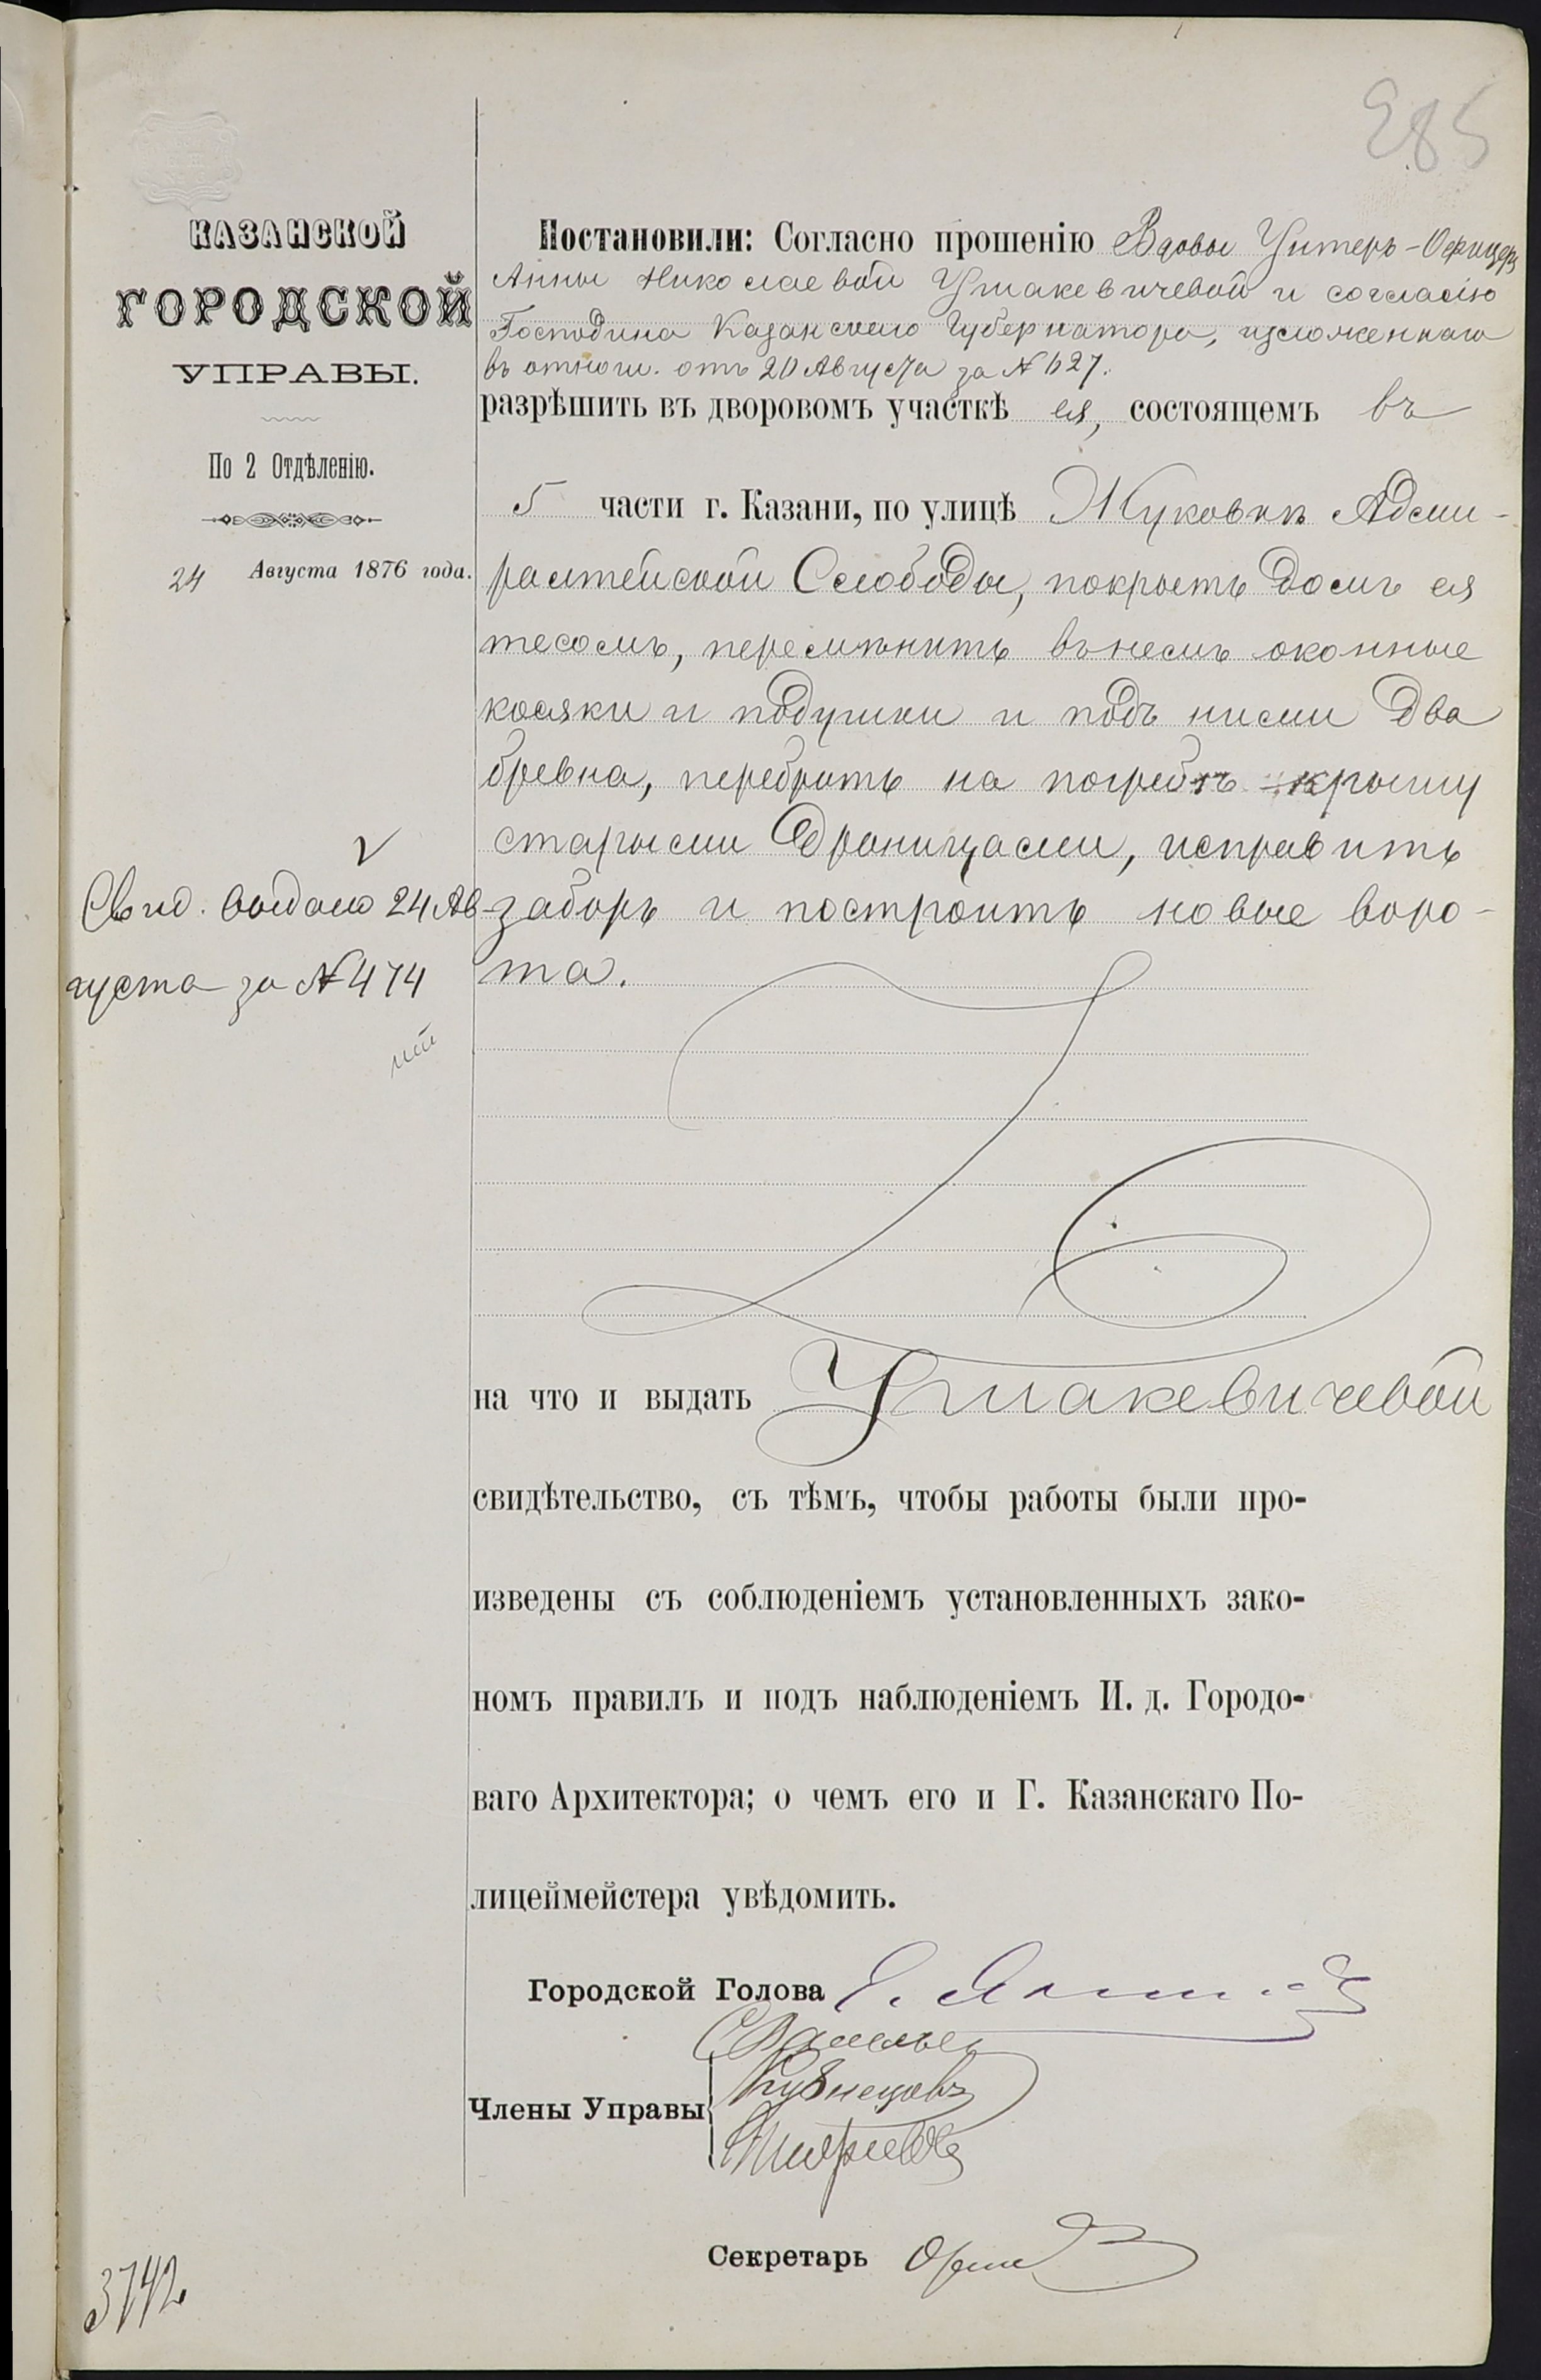 285
КАЗАНСКОЙ
ГОРОДСКОЙ
УПРАВЫ.
По 2 Отдѣленію.
24 Августа 1876 года.
Постановили: Согласно прошенію Вдовы Унтеръ-Офицера
Анны Николаевой Ушакевичевой и согласію
Господина Казанскаго Губернатора, изложеннаго
въ отнош. отъ 20 Августа за № 627.
разрѣшить въ дворовомъ участкѣ ея, состоящемъ въ
5 части г. Казани, по улицѣ Жуковкѣ Адми-
ралтейской Слободы, покрыть домъ ея
тесомъ, перемѣнить въ немъ оконные
косяки и подушки и подъ ними два
бревна, перебрать на погребѣ крышу
старыми драницами, исправить
заборъ и построить новые воро-
та.
Свид. выдано 24 Ав-
густа за № 474
на что и выдать Ушакевичевой
свидѣтельство, съ тѣмъ, чтобы работы были про-
изведены съ соблюденіемъ установленныхъ зако-
номъ правилъ и подъ наблюденіемъ И. д. Городо-
ваго Архитектора; о чемъ его и Г. Казанскаго По-
лицеймейстера увѣдомить.
Городской Голова
Члены Управы
Кузнецовъ
Секретарь
3742